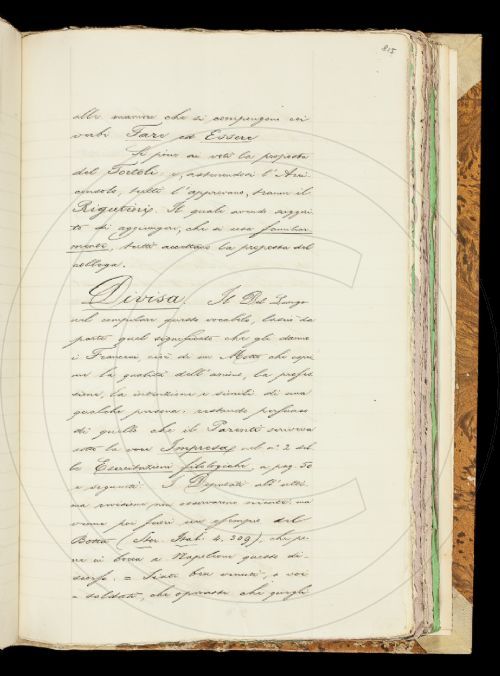 815
alle maniere che si compongono coi
verbi Fare ed Essere
Si pone ai voti la proposta
del Tortoli; e, astenendosi l'Arci-
consolo, tutti l'approvano, tranne il
Rigutini. Il quale avendo suggeri-
to di aggiungere, che si usa familiar-
mente, tutti accettano la proposta del
collega.
Divisa. Il Del Lungo
nel compilar questo vocabolo, lasciò da
parte quel significato che gli danno
i Francesi, cioè di un Motto che espri-
me la qualità dell'animo, la profes-
sione, la intenzione e simili di una
qualche persona: restando persuaso
di quello che il Parenti scriveva
sotto la voce Impresa, nel n.° 2 del-
le Esercitazioni filologiche, a pag. 50
e seguenti. I Deputati all'ulti-
ma revisione non osservarono niente: ma
venne poi fuori un esempio del
Botta (Stor. Ital. 4, 309), che po-
ne in bocca a Napoleone questo di-
scorso: = Siate ben venuti, o voi
= soldati, che operaste che quegli